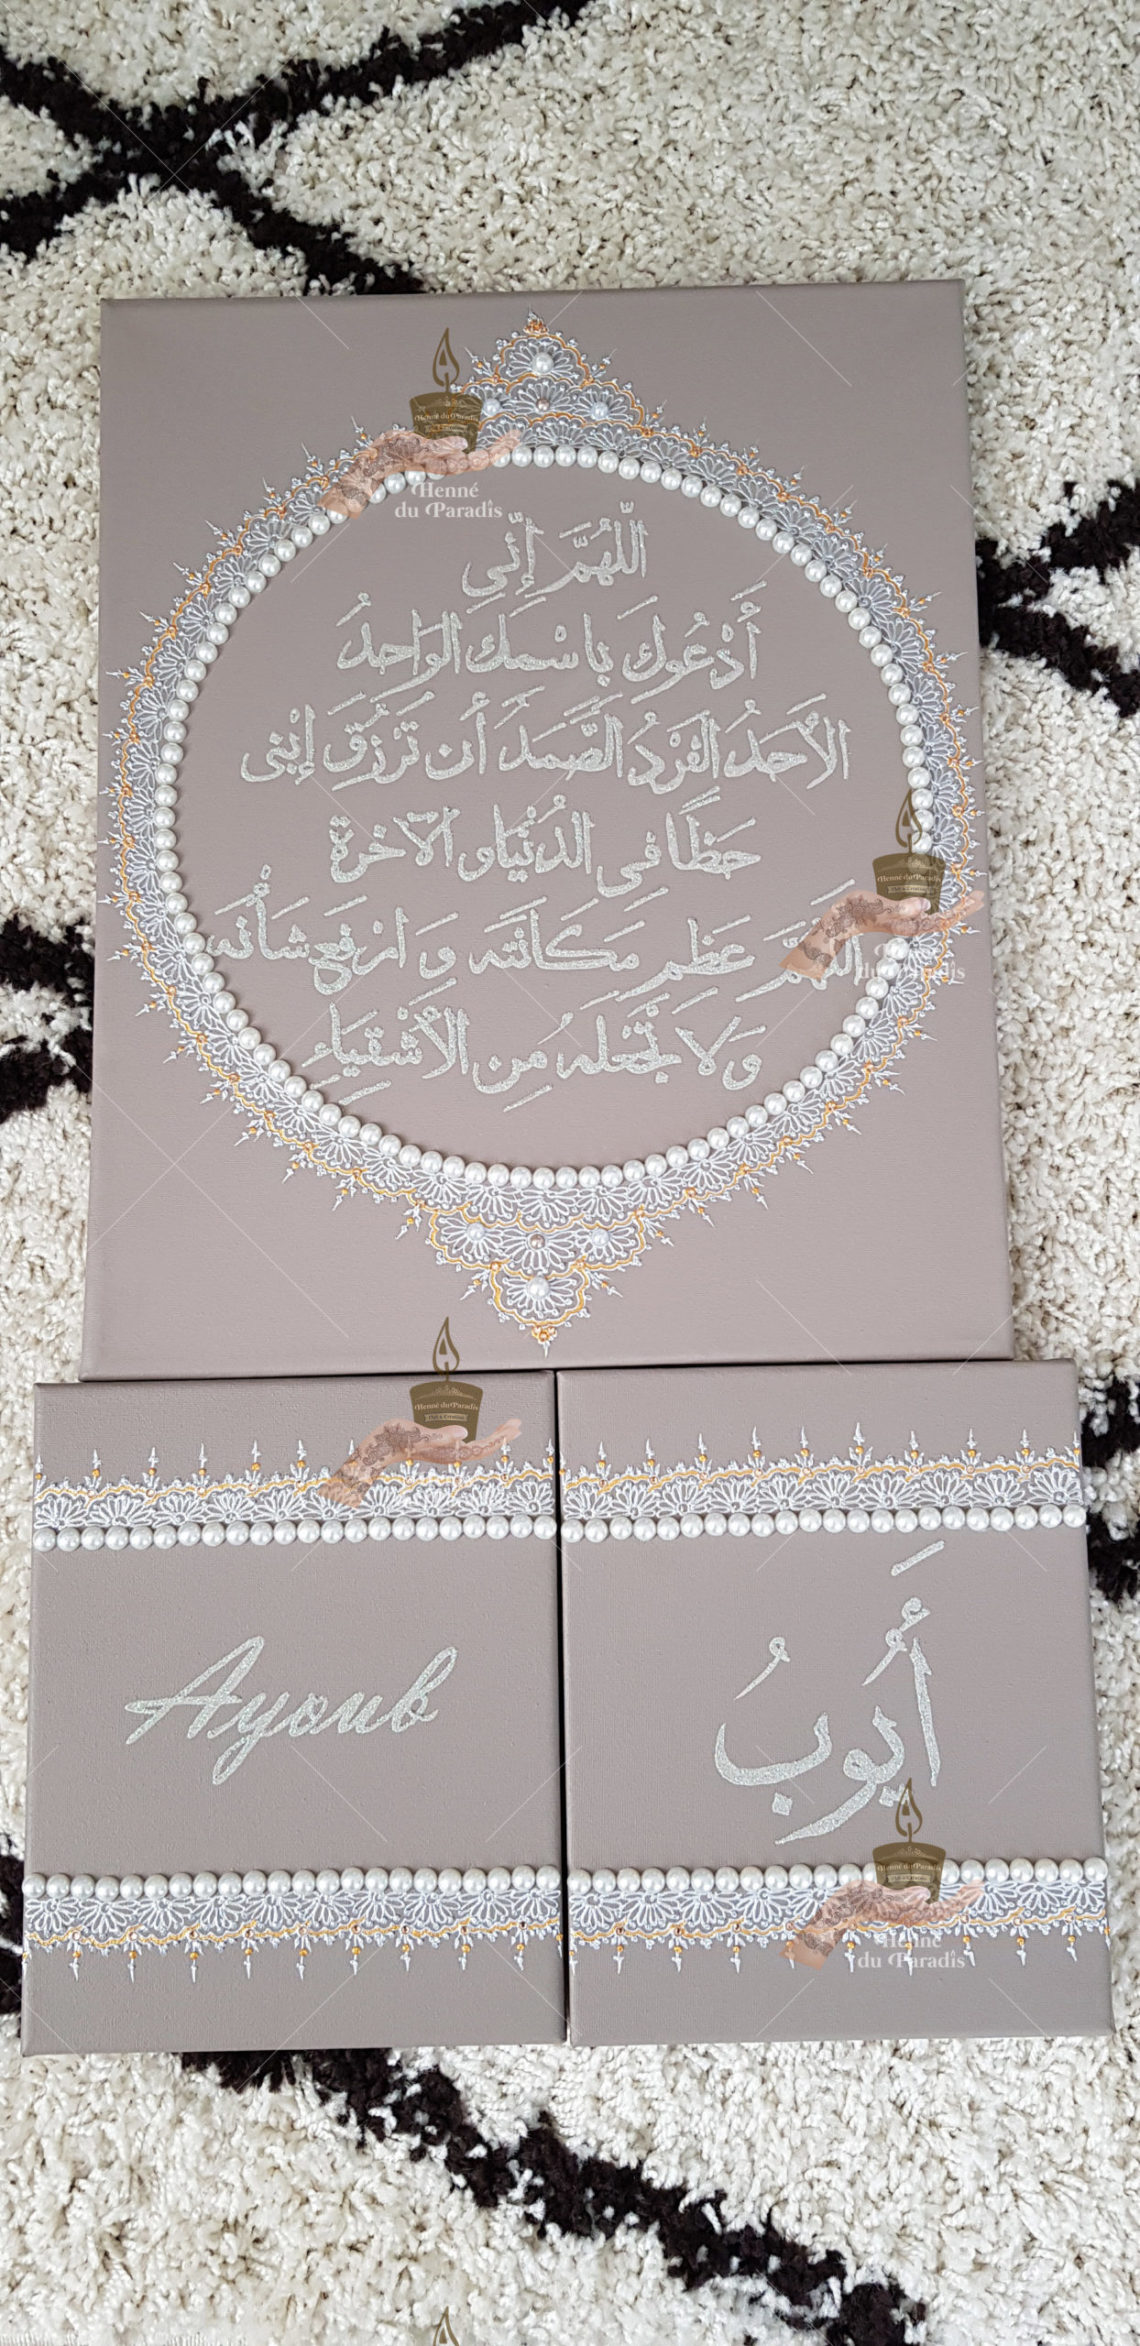 Henné
du Paradis
اللّهُمَّ إنّي
أَدْعُوكَ بَاسْمِكَ الوَاحِدُ
الأَحَدُ الفَرْدُ الصَّمَدَ أن تَرْزُقَ إبْنى
حَظَّا فى الدُنْيَا و الآخرة
اللهُمَّ عَظِم مَكَانَتَه وَ ارْفَع شَأْنَه
وَلا تَجْعَلهُ مِن الأَشْقِيَاءِ
Henné du Paradis
du Paradis
Henné du Paradis
Ayoub
أَيُّوبُ
Henné du Paradis
Henné
du Paradis